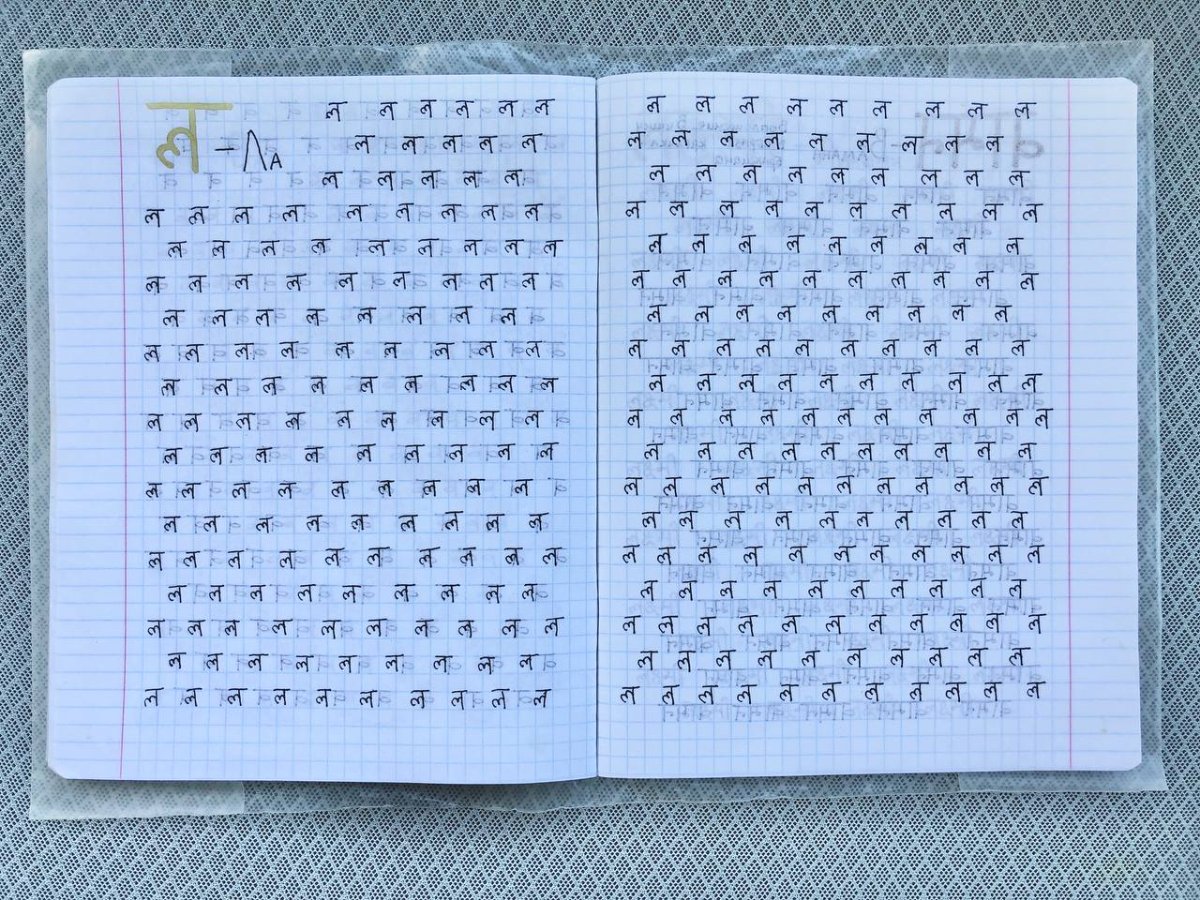 ल - ЛА ल ल ल ल ल ल
ल ल ल ल ल
ल ल ल ल ल
ल ल ल ल ल ल ल ल ल
ल ल ल ल ल ल ल ल ल
ल ल ल ल ल ल ल ल ल
ल ल ल ल ल ल ल ल
ल ल ल ल ल ल ल ल ल
ल ल ल ल ल ल ल ल ल
ल ल ल ल ल ल ल ल ल
ल ल ल ल ल ल ल ल ल
ल ल ल ल ल ल ल ल ल
ल ल ल ल ल ल ल ल ल
ल ल ल ल ल ल ल ल ल ल
ल ल ल ल ल ल ल ल ल
ल ल ल ल ल ल ल ल ल ल
ल ल ल ल ल ल ल ल ल
ल ल ल ल ल ल ल ल ल ल
ल ल ल ल ल ल ल ल ल
ल ल ल ल ल ल ल ल ल
ल ल ल ल ल ल ल ल ल
ल ल ल ल ल ल ल ल ल ल
ल ल ल ल ल ल ल ल ल
ल ल ल ल ल ल ल ल ल ल
ल ल ल ल ल ल ल ल ल
ल ल ल ल ल ल ल ल ल ल
ल ल ल ल ल ल ल ल ल ल
ल ल ल ल ल ल ल ल ल ल ल
ल ल ल ल ल ल ल ल ल ल
ल ल ल ल ल ल ल ल ल ल ल
ल ल ल ल ल ल ल ल ल ल
ल ल ल ल ल ल ल ल ल ल ल
ल ल ल ल ल ल ल ल ल ल
ल ल ल ल ल ल ल ल ल ल ल
ल ल ल ल ल ल ल ल ल ल
ल ल ल ल ल ल ल ल ल ल ल